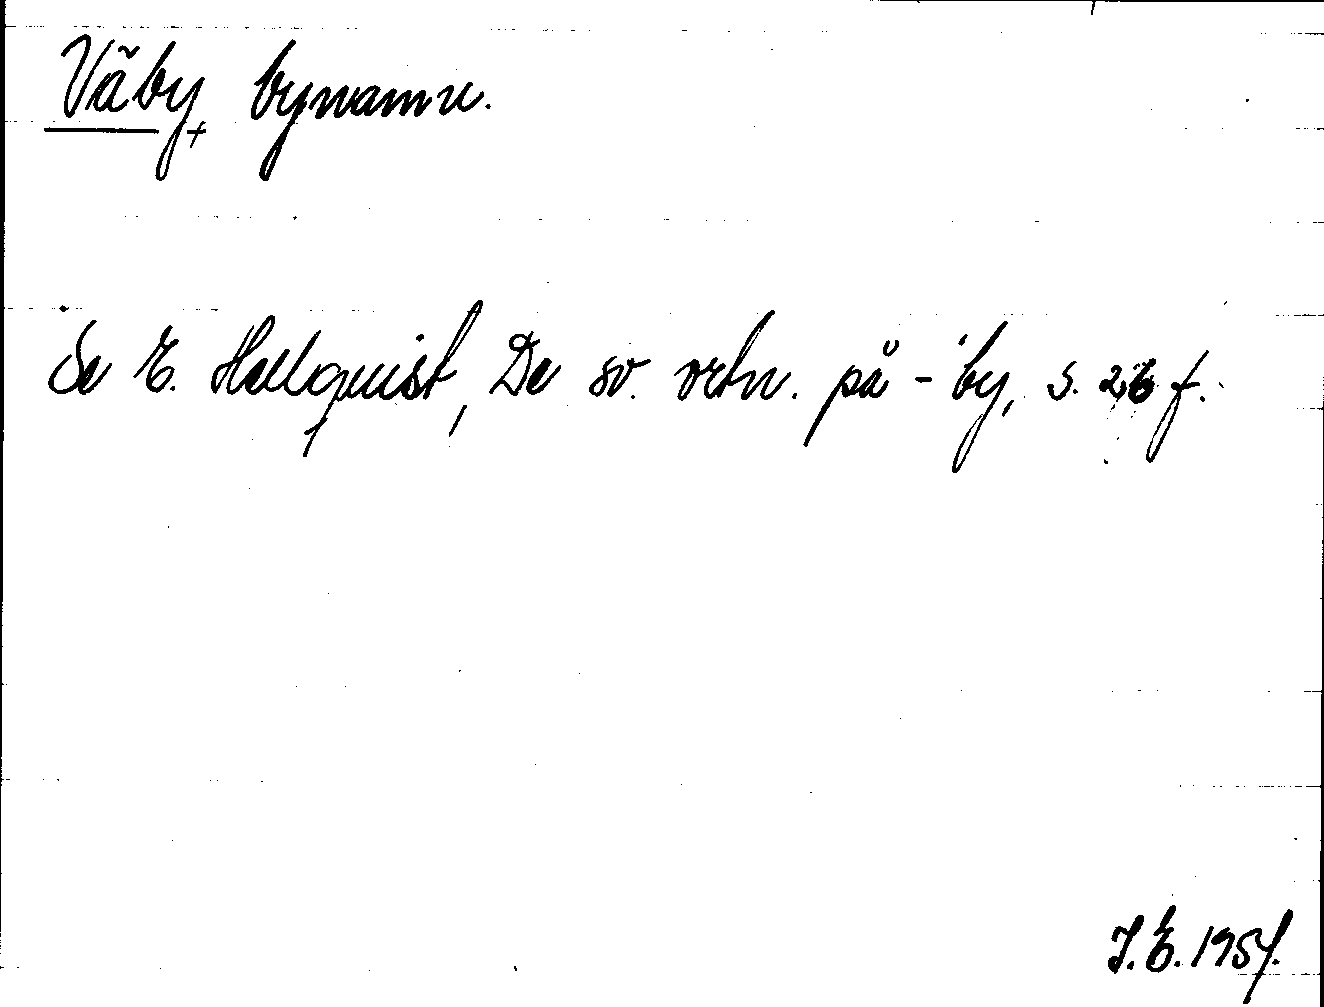 Väby, bynamn.
Se E. Hellquist, De sv. ortn. på -by, s. 26 f.
J. E. 1954.